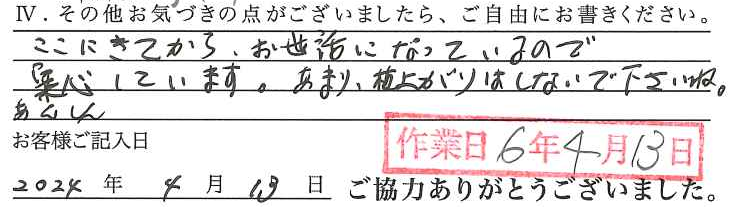 Ⅳ．その他お気づきの点がございましたら、ご自由にお書きください。
ここにきてから、お世話になっているので
安心しています。あまり、値上がりはしないで下さいね。
あんしん
お客様ご記入日
作業日 6年4月13日
2024 年 4 月 13 日 ご協力ありがとうございました。